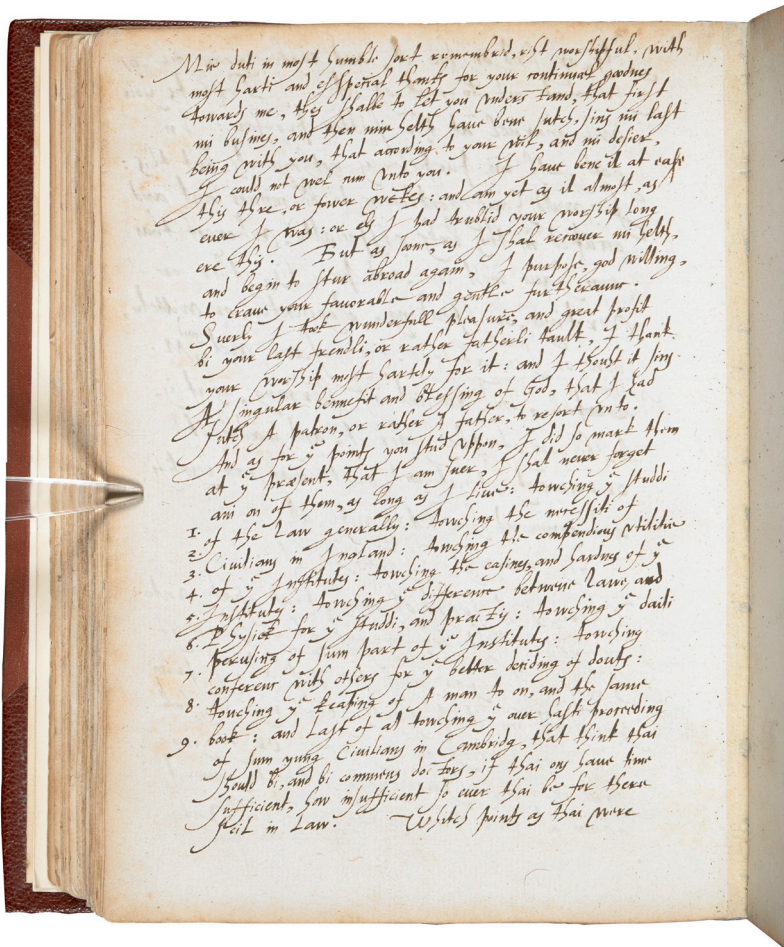 Mie duti in most humble sort remembrid, riht worshipful. With
most harti and esspecial thanks for your continual goodnes
towards me, thes shalbe to let you understand, that first
mi busines, and then mine helth have bene sutch, sins mi last
being with you, that according to your wil, and mi desier,
I could not wel cum unto you. I have bene il at ease
this thre, or fower wekes: and am yet as il almost, as
ever I was: or els I had trublid your worship long
ere this. But as soone, as I shal recover mi helth,
and begin to stur abroad again, I purpose, god willing,
to crave your favorable and gentle furtheraunc.
Suerly I took wunderfull pleasure, and great profit
bi your last frendli, or rather fatherli taulk, I thank
your worship most hartely for it: and I thouht it sins
A singular bennefit and blessing of God, that I had
sutch A patron, or rather A father, to resort unto.
And as for yͤ points you stud uppon, I did so mark them
at yͤ præsent, that I am suer, I shal never forget
ani on of them, as long as I live: towching yͤ studdi
1. of the Law generally: towching the necessiti of
2. Civilians in Ingland: towching the compendious utilitie
3. of yͤ Institutes: towching the easines, and hardnes of yͤ
4. Institutes: towching yͤ difference betwene Lawe, and
5. Physick for yͤ studdi, and practis: towching yͤ daili
6. perusing of sum part of yͤ Institutes: towching
7. conferenc with others for yͤ better deciding of douts:
8. touching yͤ keaping of A man to on, and the same
9. book: and last of al towching yͤ over hasti proceeding
of sum yung Civilians in Cambridg, that think thai
should bi, and bi commens doctors, if thai ons have time
sufficient, how insufficient so ever thai be for there
skil in Law. Whitch points as thai were